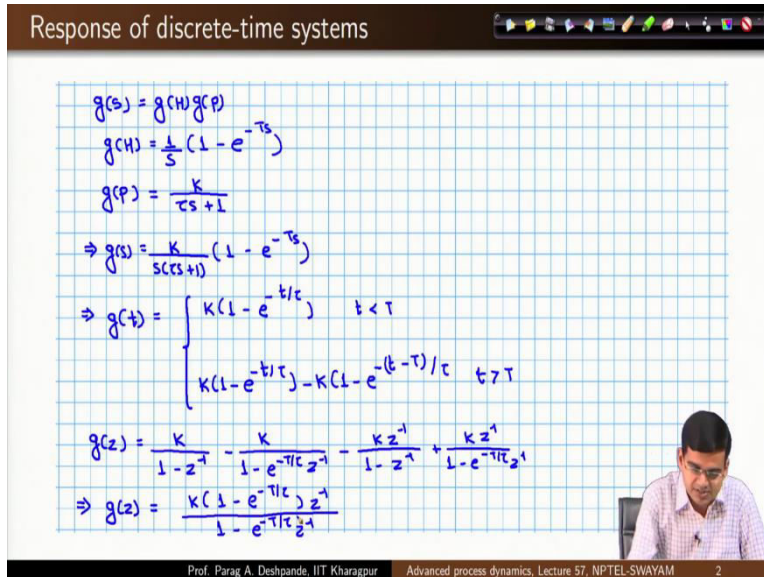 Response of discrete-time systems
g(s) = g(H)g(P)
g(H) = 1/s (1 - e^{-Ts})
g(P) = K/(τs + 1)
⇒ g(s) = K/(s(τs+1)) (1 - e^{-Ts})
⇒ g(t) = { K(1 - e^{-t/τ}) t < T
K(1 - e^{-t/τ}) - K(1 - e^{-(t-T)/τ}) t > T
g(z) = K/(1 - z^{-1}) - K/(1 - e^{-T/τ} z^{-1}) - K z^{-1}/(1 - z^{-1}) + K z^{-1}/(1 - e^{-T/τ} z^{-1})
⇒ g(z) = K(1 - e^{-T/τ}) z^{-1}/(1 - e^{-T/τ} z^{-1})
Prof. Parag A. Deshpande, IIT Kharagpur Advanced process dynamics, Lecture 57, NPTEL-SWAYAM 2